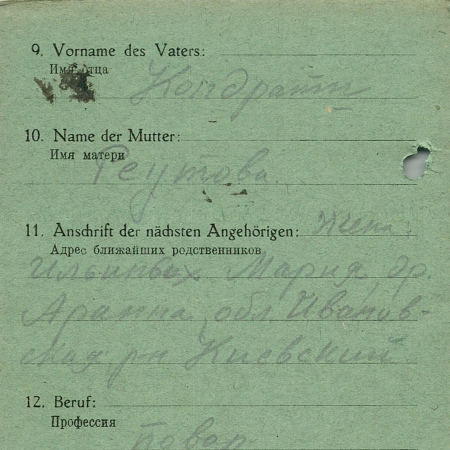 9. Vorname des Vaters:
Имя отца
Кондратий
10. Name der Mutter:
Имя матери
Реутова
11. Anschrift der nächsten Angehörigen: жена:
Адрес ближайших родственников
Мария, др.
обл Иванов-
ская р-н Киевский
12. Beruf:
Профессия
повар